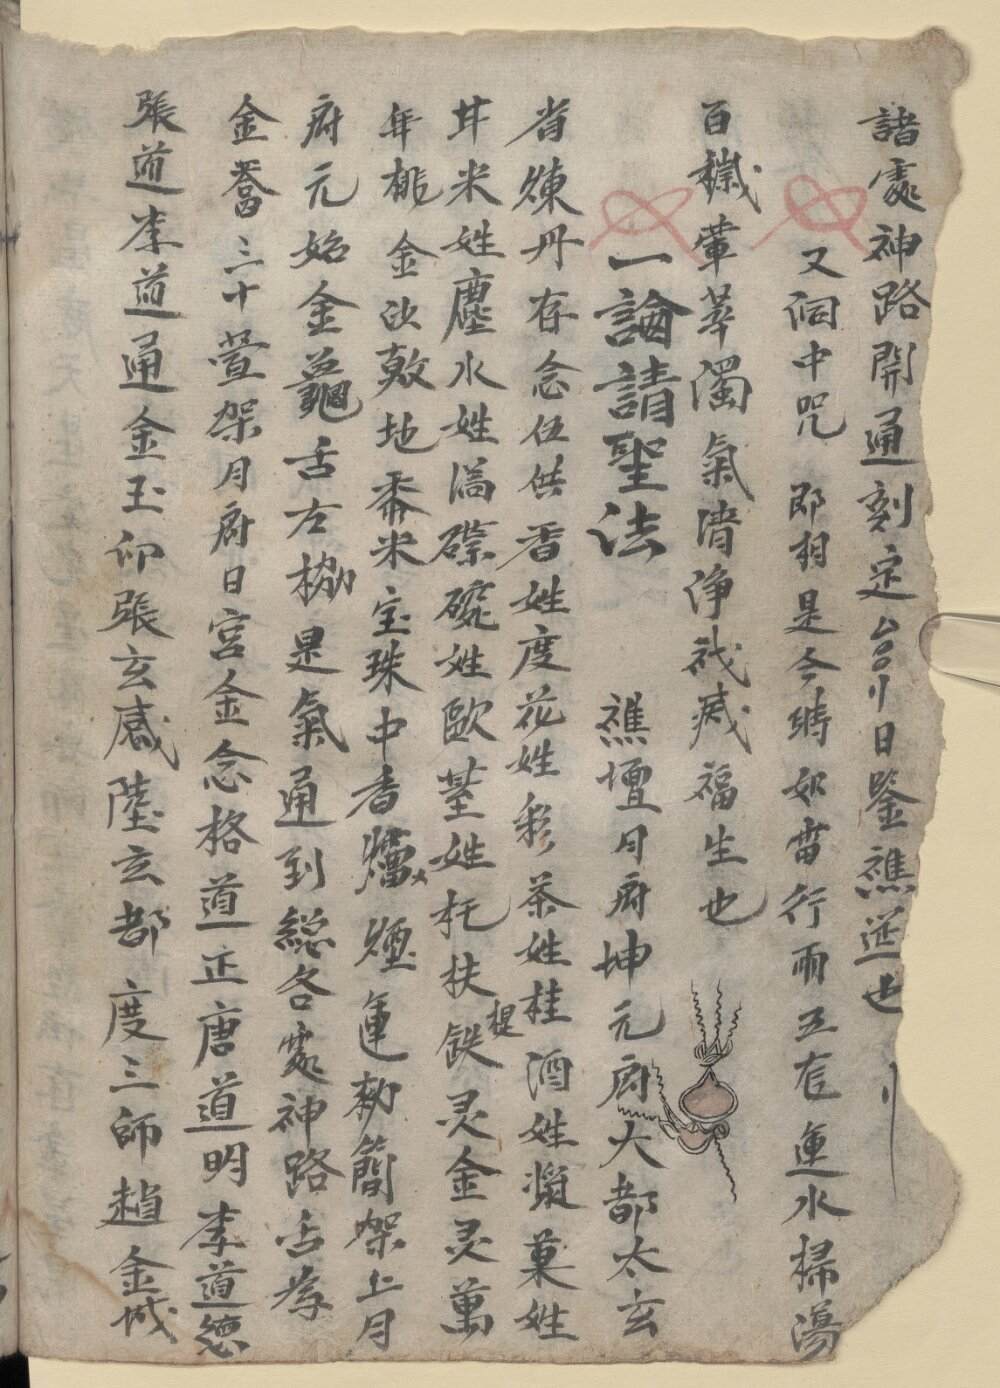 諸處神路開通刻定 日鑒醮筵也
又洞中咒 即相是今時如雷行雨五 運水掃湯
百穢葷 濁氣清淨 福生也
一論請聖法 醮壇月府坤元府大都太玄
省煉丹存念伍供香姓度花姓彩茶姓桂酒姓漿菓姓
井米姓塵水姓 姓歐莖姓托扶鉄灵金灵萬
年桃金 地黍米宝珠中香爐煙運勅簡架上月
府元始金 舌右 是氣通到総各處神路 為
金 三十萱架月府日宮金念格道正唐道明李道德
張道李道通金玉印張玄感陸玄都度三師趙金城